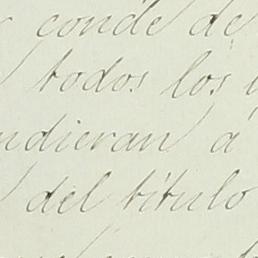 conde de
todos los
udieran á
del título